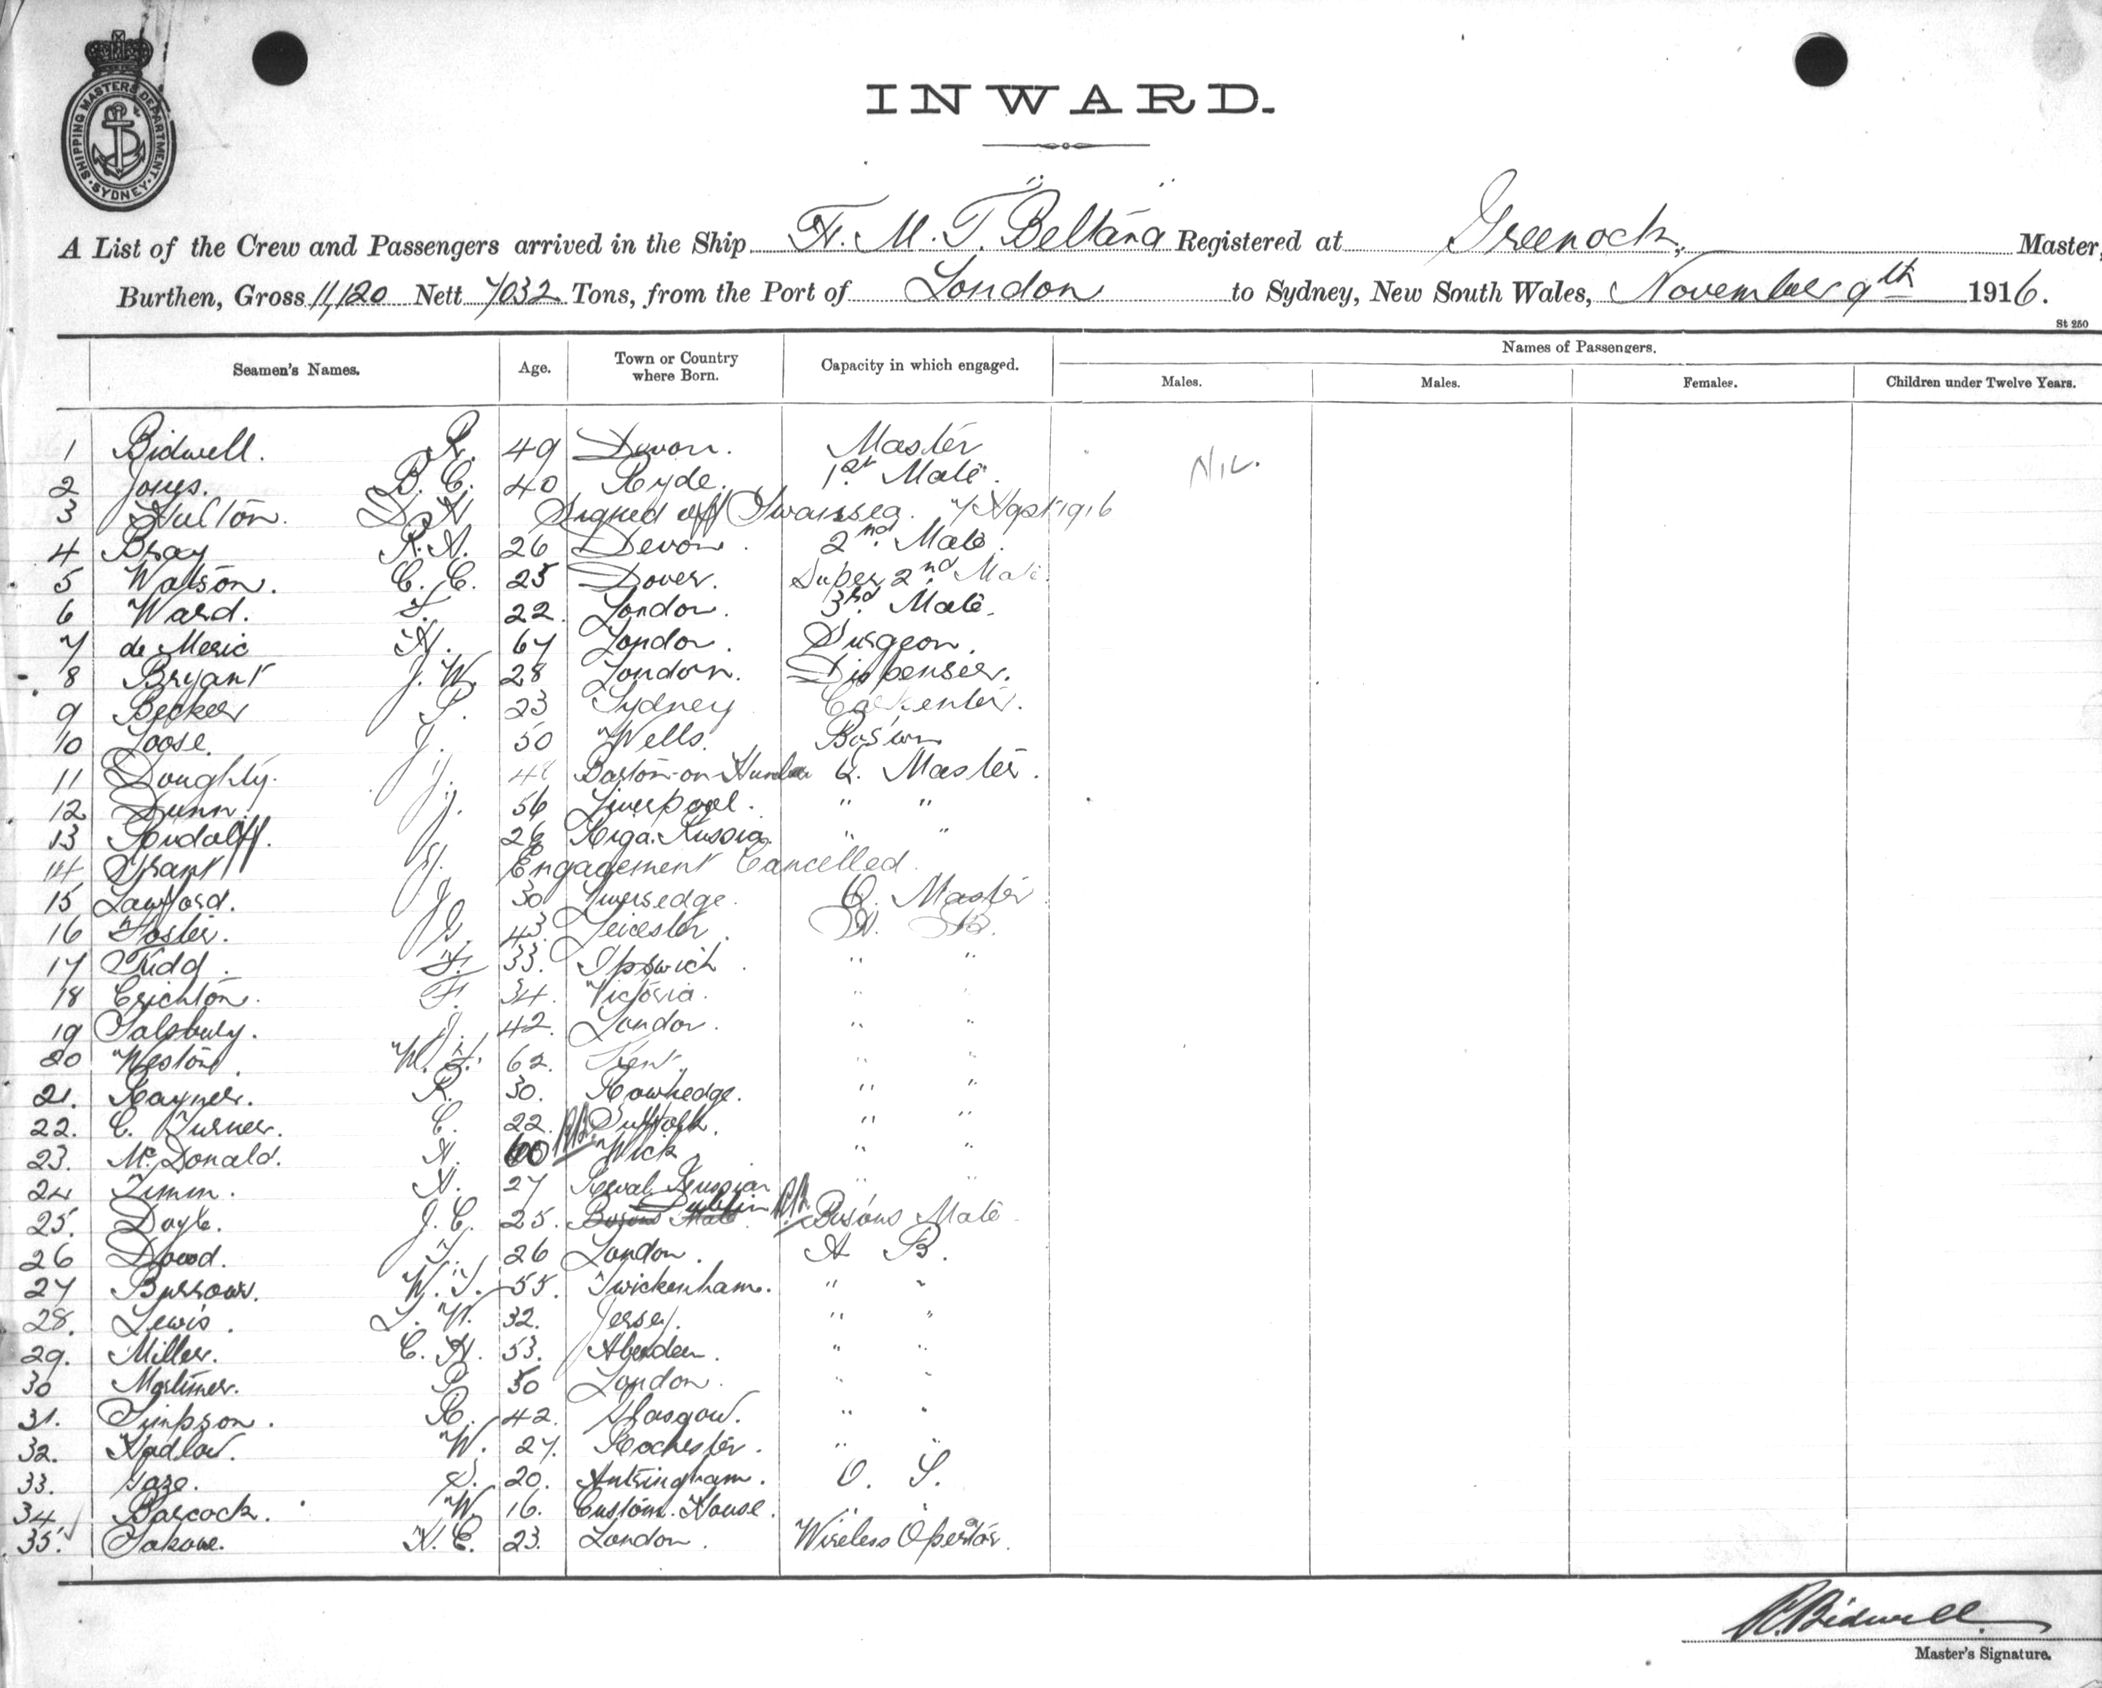 SHIPPING MASTERS DEPARTMENT · SYDNEY ·
INWARD.
A List of the Crew and Passengers arrived in the Ship H. M. T. Beltana Registered at Greenock, Master,
Burthen, Gross 11,120 Nett 7032 Tons, from the Port of London to Sydney, New South Wales, November 9th 1916.
St 250
Seamen's Names. Age. Town or Country where Born. Capacity in which engaged. Names of Passengers.
Males. Males. Females. Children under Twelve Years.
1 Bidwell. R. 49 Devon. Master Nil.
2 Jones. B. C. 40 Ryde. 1st Mate.
3 Hulton. Signed off Swansea. 1916
4 Bray R. A. 26 Devon. 2nd Mate.
5 Watson. C. C. 25 Dover. Super 2nd Mate.
6 Ward. F. 22. London. 3rd Mate.
7 de Meric H. 67 London. Surgeon.
8 Bryant J. W. 28 London. Dispenser.
9 Becker P. 23 Sydney Carpenter.
10 Loose. J. 50 Wells. Bos'wn
11 Doughty. J. 48 Barton-on-Humber Q. Master.
12 Dunn. J. 56 Liverpool. " "
13 Rudolff. J. 26 Riga. Russia. " "
14 Grant Engagement Cancelled.
15 Lawford. J. 30 Liversedge. Q. Master
16 Foster. G. 43. Leicester. A. B.
17 Kidd. F. 33. Ipswich. " "
18 Crichton. F. 34. Victoria. " "
19 Salsbury. J. 42. London. " "
20 Weston. W. F. 62. Kent. " "
21. Rayner. R. 30. Rowhedge. " "
22. C. Turner. C. 22. Suffolk. " "
23. McDonald. A. 60 Wick " "
24 Timm. A. 27 Reval. Russian " "
25. Doyle. J. C. 25. Bosons Mate Dublin Bosons Mate
26 Dowd. T. 26 London. A B.
27 Burrows. W. T. 55. Twickenham. " "
28. Lewis. T. W. 32. Jersey. " "
29. Miller. C. H. 53. Aberdeen. " "
30 Mortimer. P. 50 London. " "
31. Simpson. R. 42. Glasgow. " "
32. Hadlow. W. 27. Rochester. " "
33. Gaze. S. 20. Antringham. O. S.
34 Barcock. W. 16. Custom. House. " "
35. H. C. 23. London. Wireless Operator.
R. Bidwell.
Master's Signature.